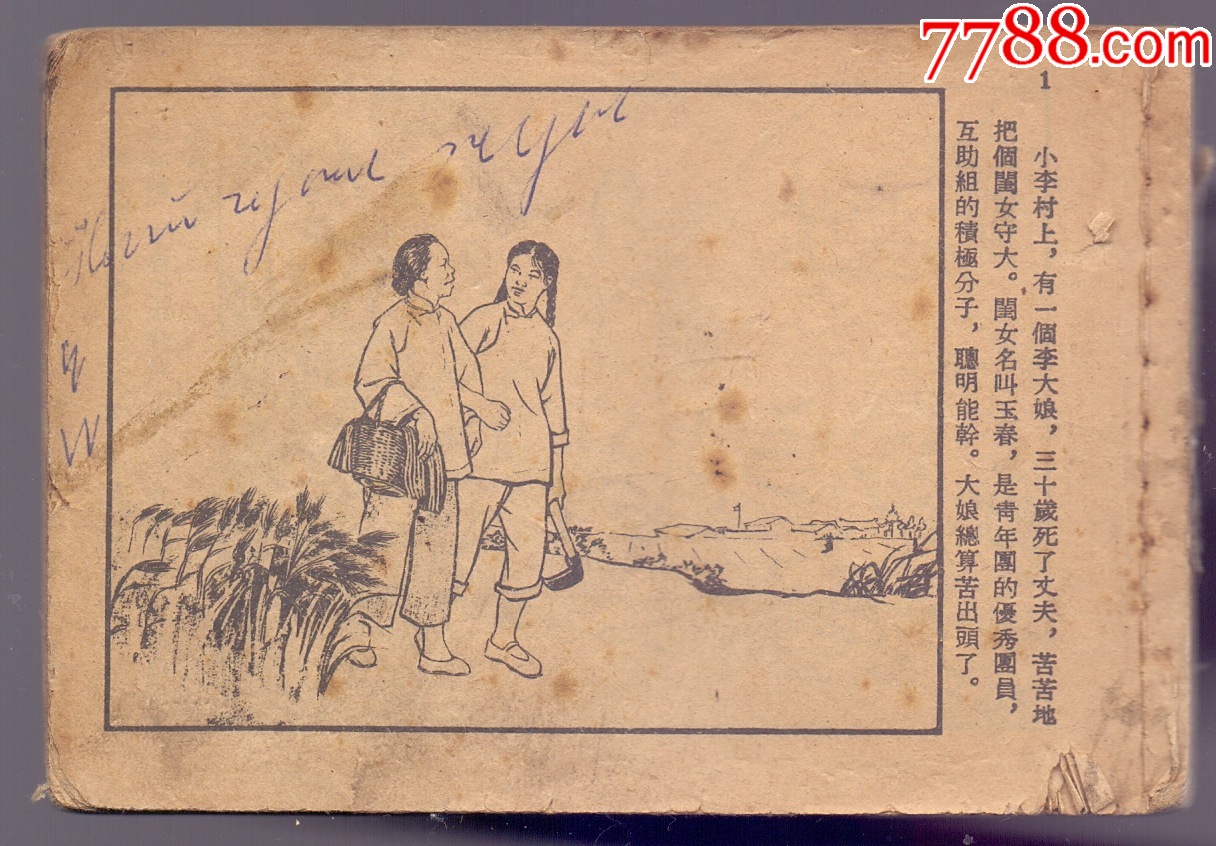 7788.com
1
小李村上，有一個李大娘，三十歲死了丈夫，苦苦地
把個閨女守大。閨女名叫玉春，是青年團的優秀團員，
互助組的積極分子，聰明能幹。大娘總算苦出頭了。